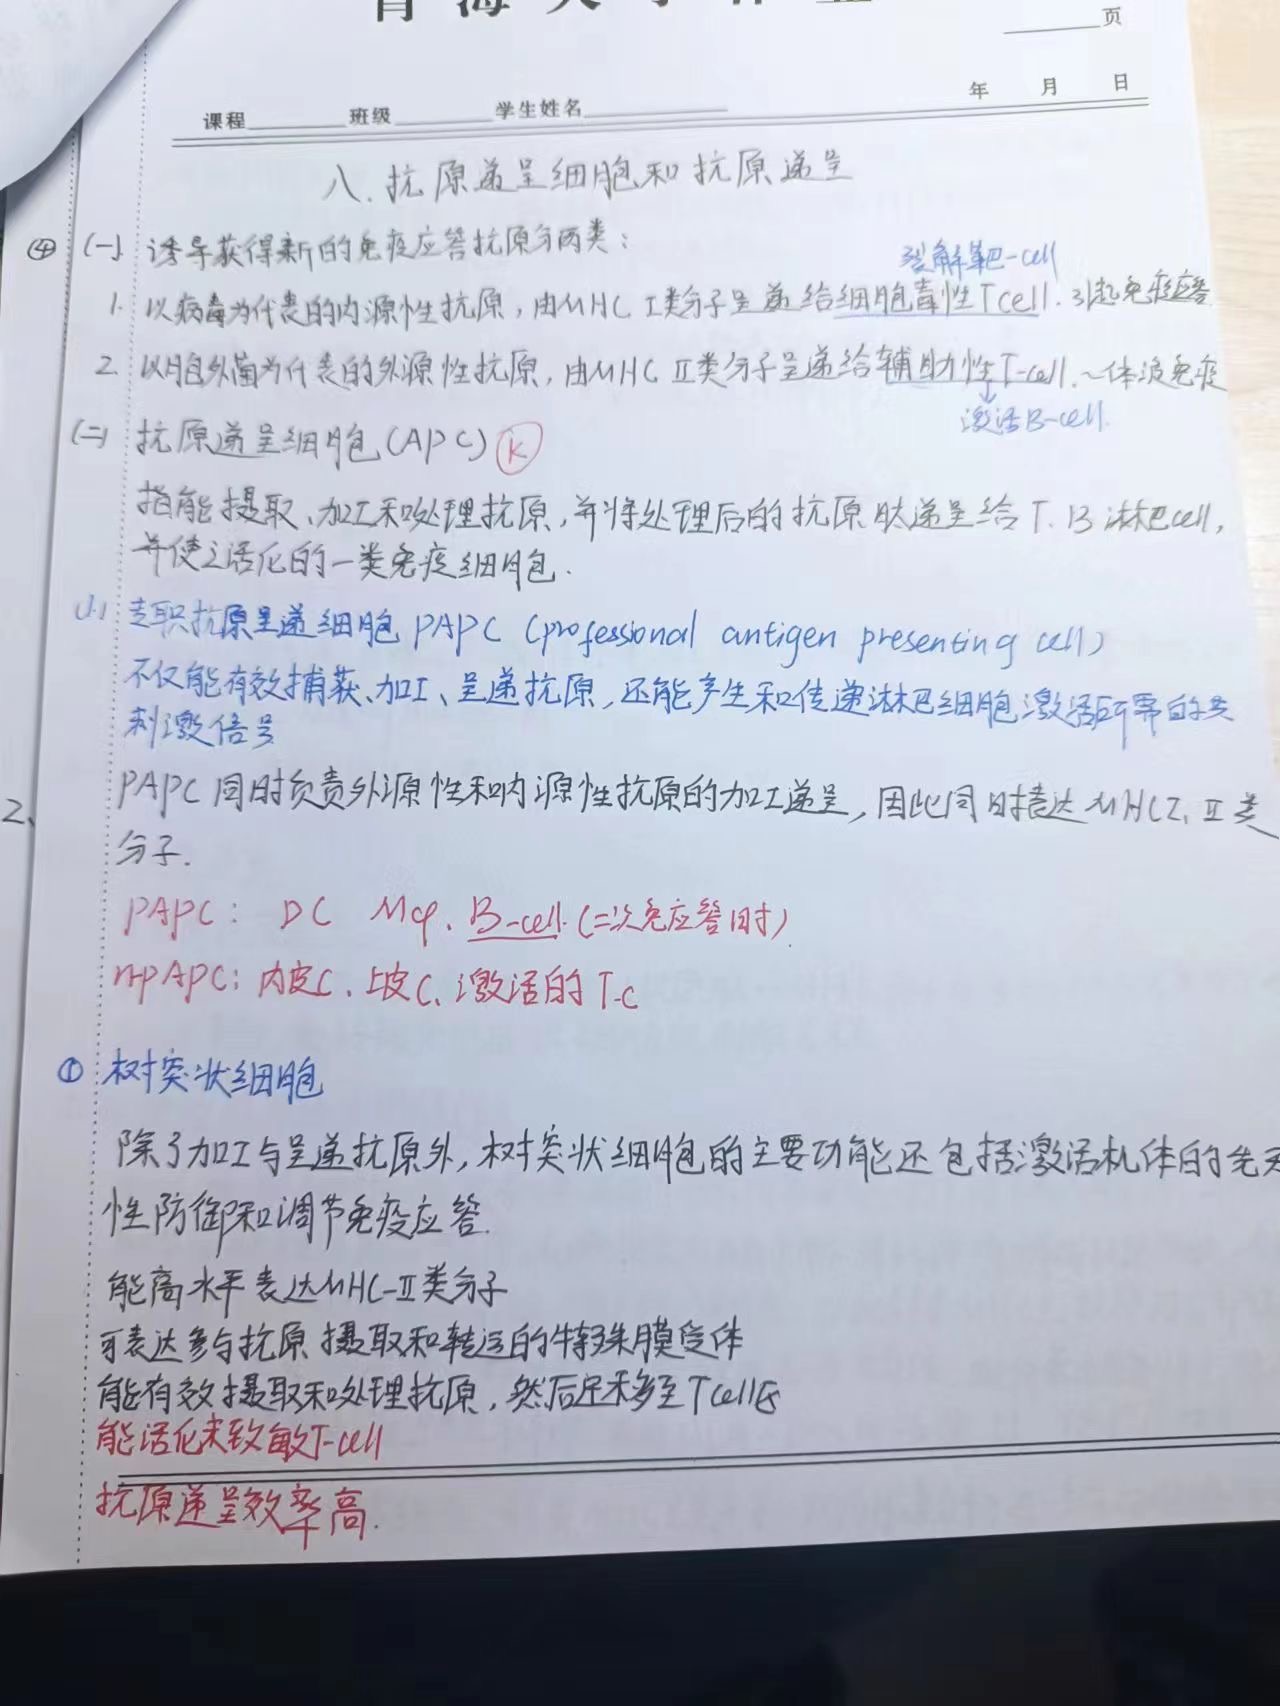 页
年 月 日
课程 班级 学生姓名
八.抗原递呈细胞和抗原递呈
④ (一) 诱导获得新的免疫应答抗原分两类:
裂解靶-cell
1. 以病毒为代表的内源性抗原,由MHC I类分子呈递给细胞毒性Tcell.引起免疫应答
2. 以胞外菌为代表的外源性抗原,由MHC II类分子呈递给辅助性T-cell.~体液免疫
↓
激活B-cell.
(二) 抗原递呈细胞(APC) K
指能摄取、加工和处理抗原,并将处理后的抗原肽递呈给T.B淋巴cell,
并使之活化的一类免疫细胞.
(1.) 专职抗原呈递细胞 PAPC (professional antigen presenting cell)
不仅能有效捕获、加工、呈递抗原,还能产生和传递淋巴细胞激活所需的共
刺激信号
PAPC同时负责外源性和内源性抗原的加工递呈,因此同时表达MHCI、II类
2、
分子.
PAPC: DC Mφ. B-cell.(二次免应答时)
n-pAPC: 内皮C、上皮C、激活的T-C
① 树突状细胞
除了加工与呈递抗原外,树突状细胞的主要功能还包括激活机体的先天
性防御和调节免疫应答.
能高水平表达MHC-II类分子
可表达参与抗原摄取和转运的特殊膜受体
能有效摄取和处理抗原,然后迁移至Tcell区
能活化未致敏T-cell
抗原递呈效率高.